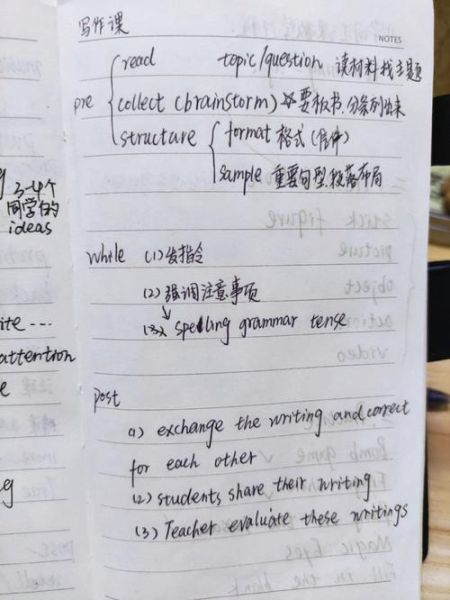 写作课
NOTES
read topic/question 读材料找主题
pre collect (brainstorm) ※要板书,分条列出来
structure format 格式(信件)
sample 重要句型,段落布局
3-4个
同学的
ideas
while (1) 发指令
(2) 强调注意事项
(3) spelling grammar tense
ite ...
attention
post
(1) exchange the writing and correct
for each other
(2) students share their writing
(3) Teacher evaluate these writings